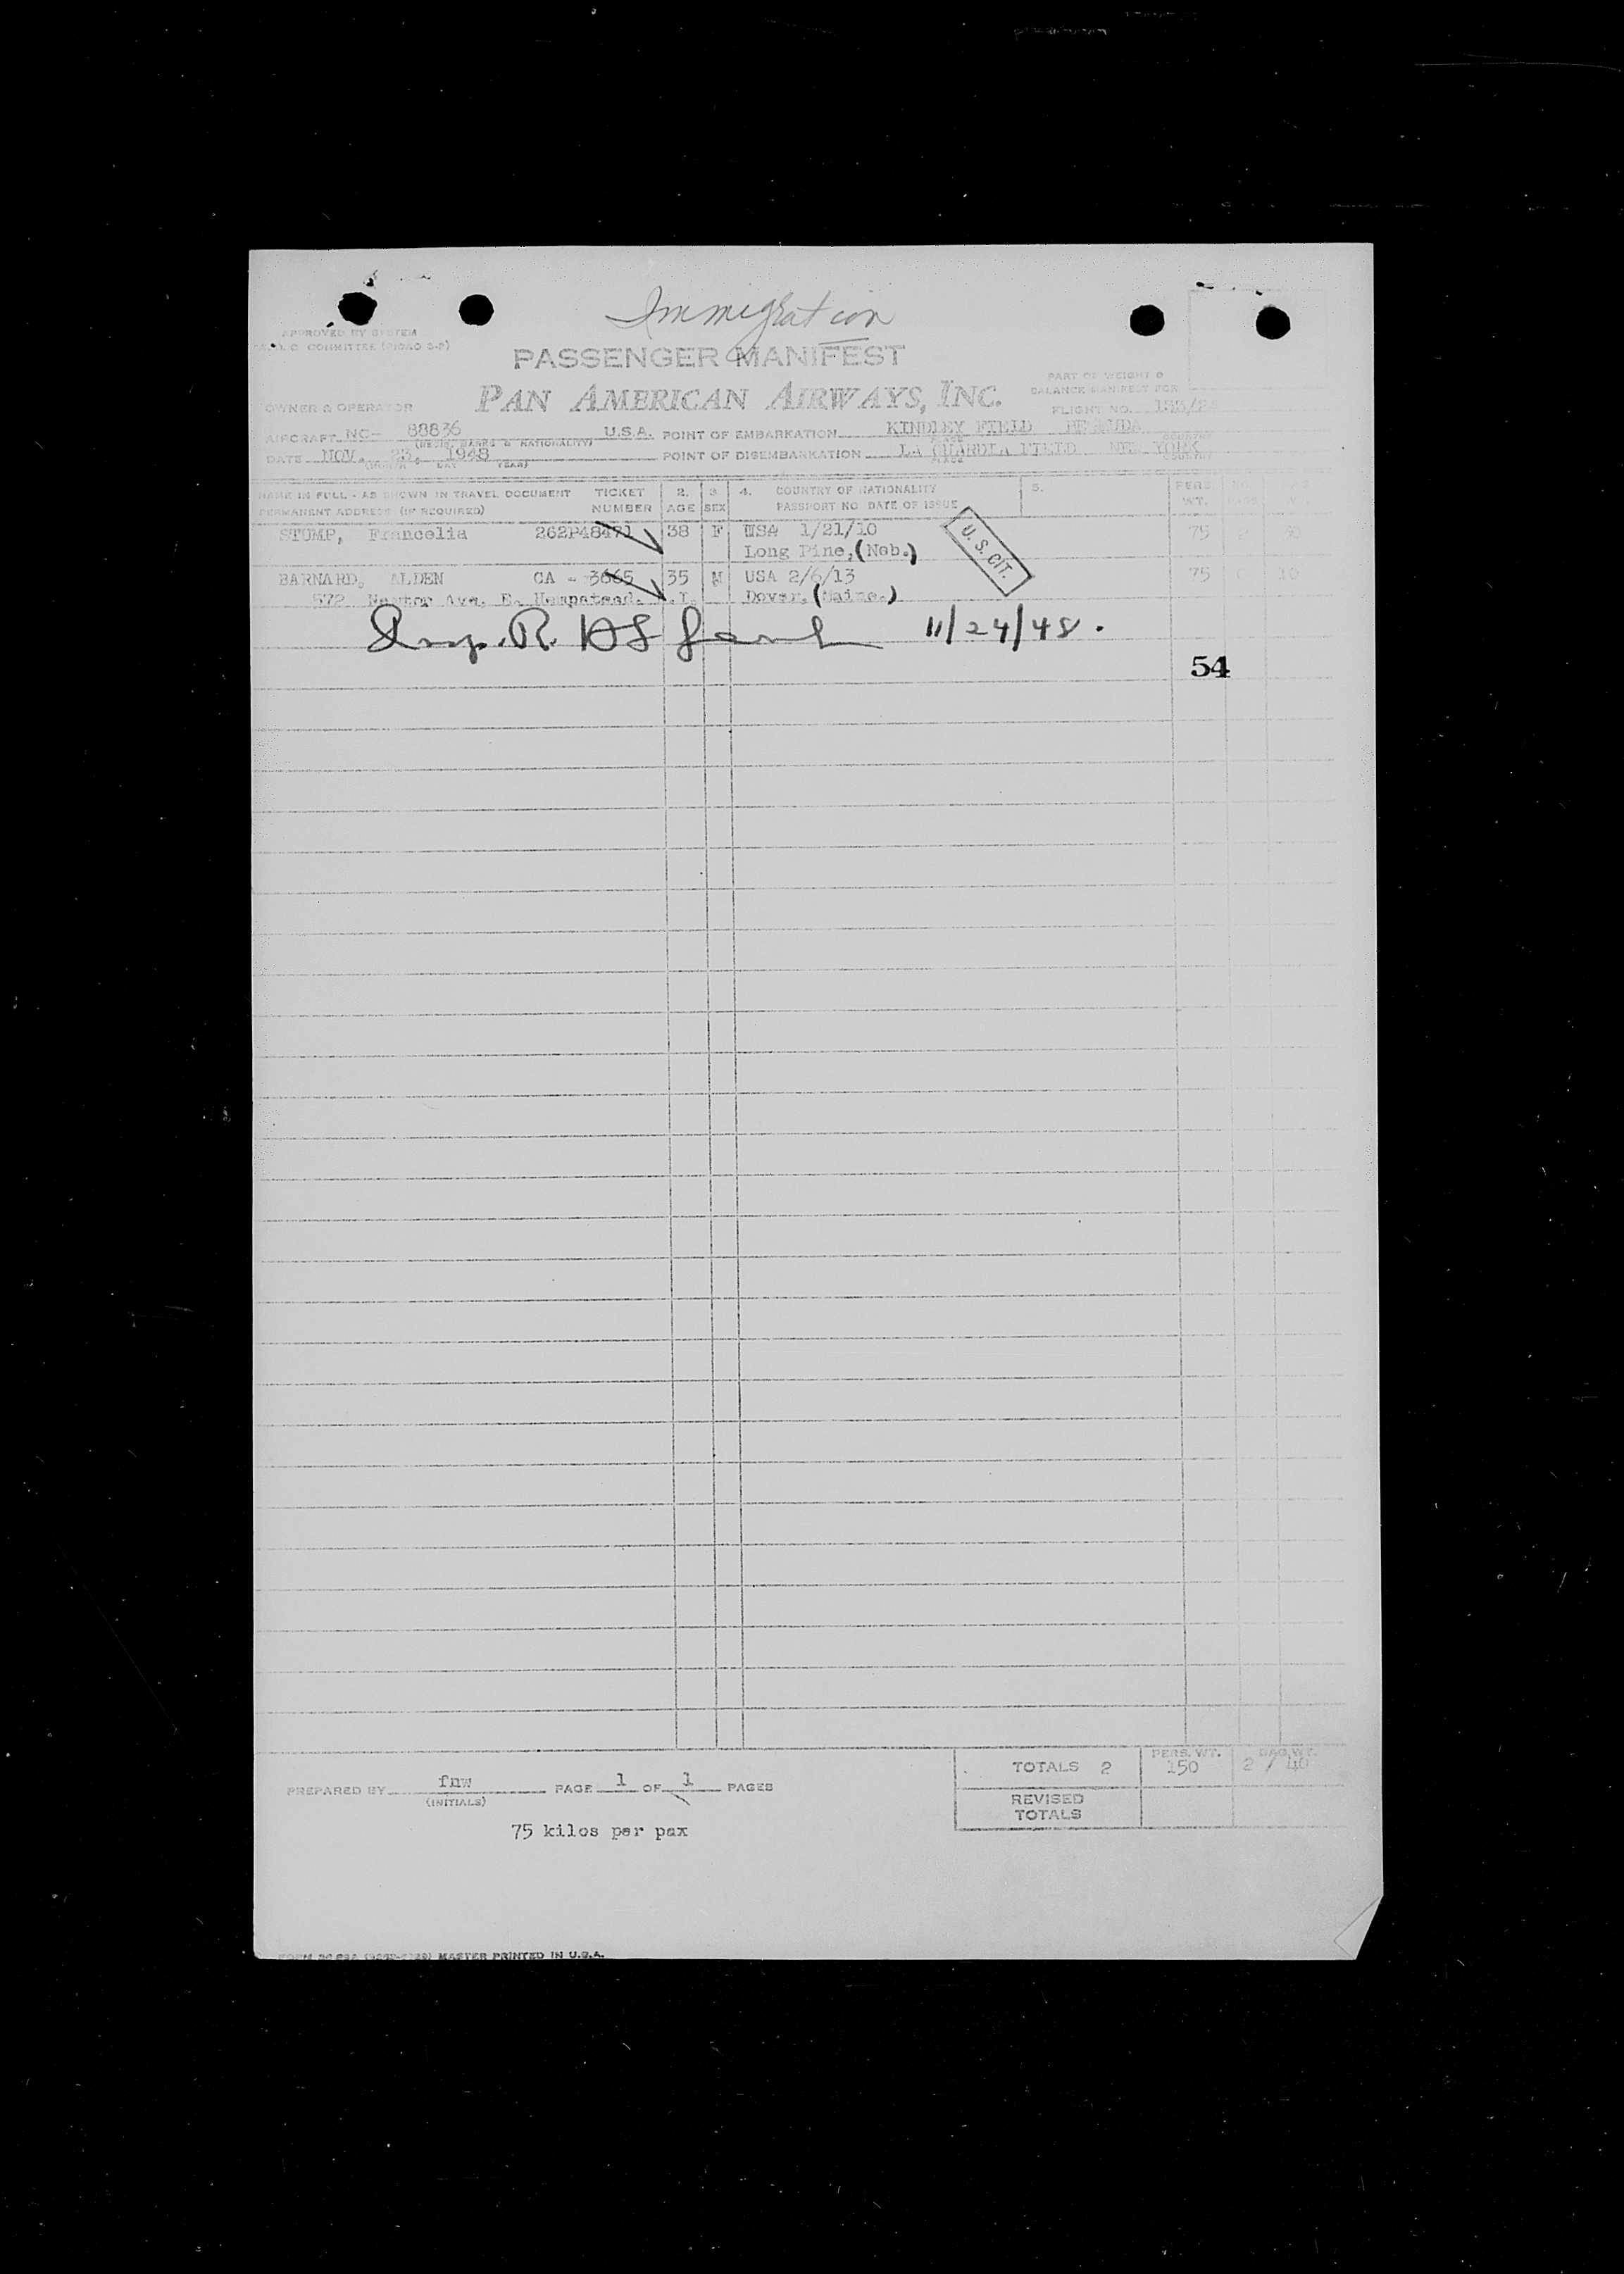 Immigration
APPROVED BY SYSTEM
COMMITTEE
PASSENGER MANIFEST
PAN AMERICAN AIRWAYS, INC.
PART OF WEIGHT &
BALANCE MANIFEST FOR
OWNER & OPERATOR
FLIGHT NO.
AIRCRAFT NC- 88836 U.S.A. POINT OF EMBARKATION KINDLEY FIELD BERMUDA
(REGIS. MARKS & NATIONALITY) PLACE COUNTRY
DATE NOV. 23, 1948 POINT OF DISEMBARKATION LA GUARDIA FIELD NEW YORK
(MONTH DAY YEAR) PLACE COUNTRY
NAME IN FULL - AS SHOWN IN TRAVEL DOCUMENT TICKET 2. 3 4. COUNTRY OF NATIONALITY 5. PERS.
PERMANENT ADDRESS (IF REQUIRED) NUMBER AGE SEX PASSPORT NO DATE OF ISSUE WT.
STUMP, Francelia 262P48471 38 F USA 1/21/10 75
Long Pine, (Neb.)
U.S. CIT.
BARNARD, ALDEN CA - 3665 35 M USA 2/6/13 75 10
572 Ave. E. Hempstead. .I. Dover, (Maine.)
Insp. R. 11/24/48.
54
TOTALS 2 PERS. WT. 150 BAG WT. 2 / 40
PREPARED BY fnw PAGE 1 OF 1 PAGES
(INITIALS)
REVISED
TOTALS
75 kilos per pax
FORM MASTER PRINTED IN U.S.A.